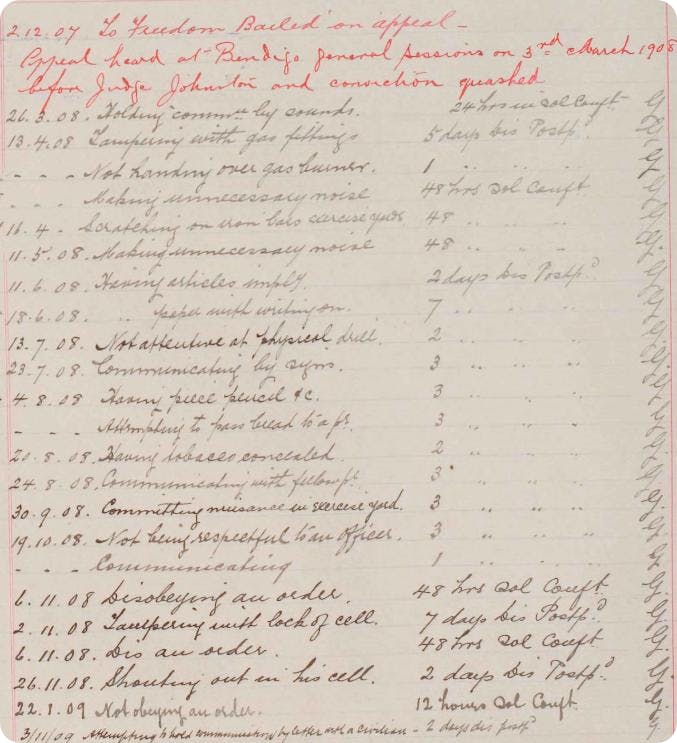 2.12.07 To Freedom Bailed on appeal -
Appeal heard at Bendigo General Sessions on 3rd March 1908
before Judge Johnston and conviction quashed
26.3.08. Holding commn by sounds. 24 hrs in Sol Conft G
13.4.08 Tampering with gas fittings 5 days Dis Postpd G
- - - Not handing over gas burner. 1 " " " G
- - - Making unnecessary noise 48 hrs Sol Conft G
16.4 - Scratching on iron bars exercise yards 48 " " " G
11.5.08. Making unnecessary noise 48 " " " G.
11.6.08. Having articles imply. 2 days Dis Postpd G
18.6.08. " paper with writing on. 7 " " " G
13.7.08. Not attentive at physical drill. 2 " " " G
23.7.08. Communicating by signs. 3 " " " G.
4.8.08 Having piece pencil &c. 3 " " " G
- - - Attempting to pass bread to a pr. 3 " " " G
20.8.08. Having tobacco concealed. 2 " " " G.
24.8.08. Communicating with fellow pr 3 " " " G
30.9.08. Committing nuisance in exercise yard. 3 " " " G.
19.10.08. Not being respectful to an Officer. 3 " " " G
- - - Communicating 1 " " " G
6.11.08 Disobeying an order. 48 hrs Sol Conft G.
2.11.08 Tampering with lock of cell. 7 days Dis Postpd G.
6.11.08. Dis an order. 48 hrs Sol Conft G.
26.11.08. Shouting out in his cell. 2 days Dis Postpd G.
22.1.09 Not obeying an order. 12 hours Sol Conft. G.
3/11/09 Attempting to hold communication by letter with a civilian - 2 days dis postpd G